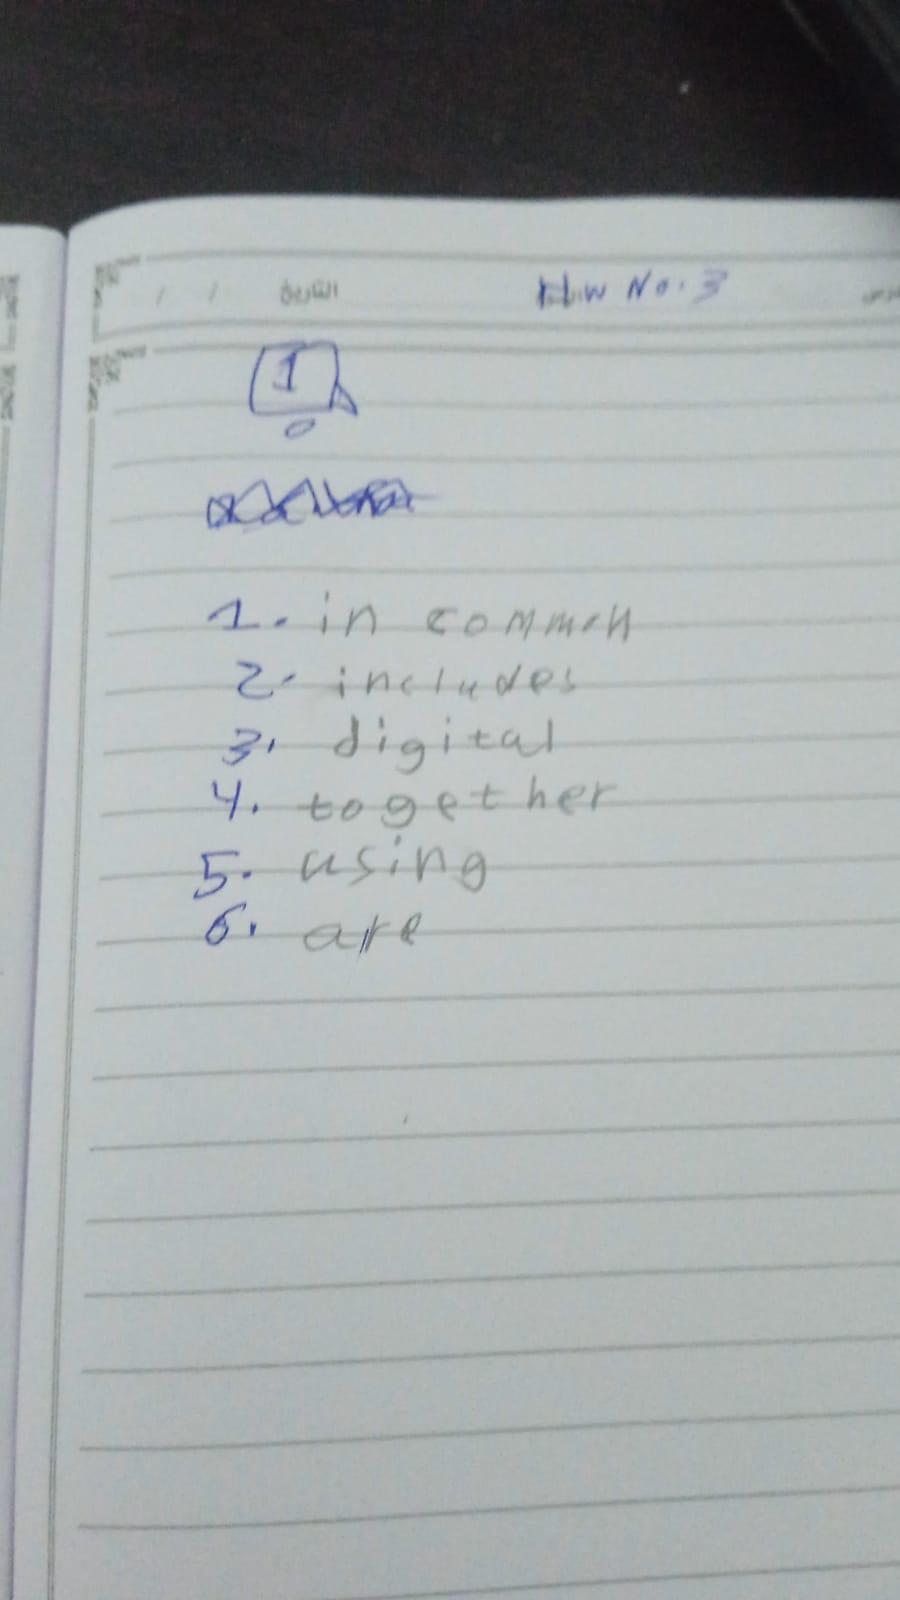 التاريخ / /
H.W No. 3
1
1. in common
2. includes
3. digital
4. together
5. using
6. are